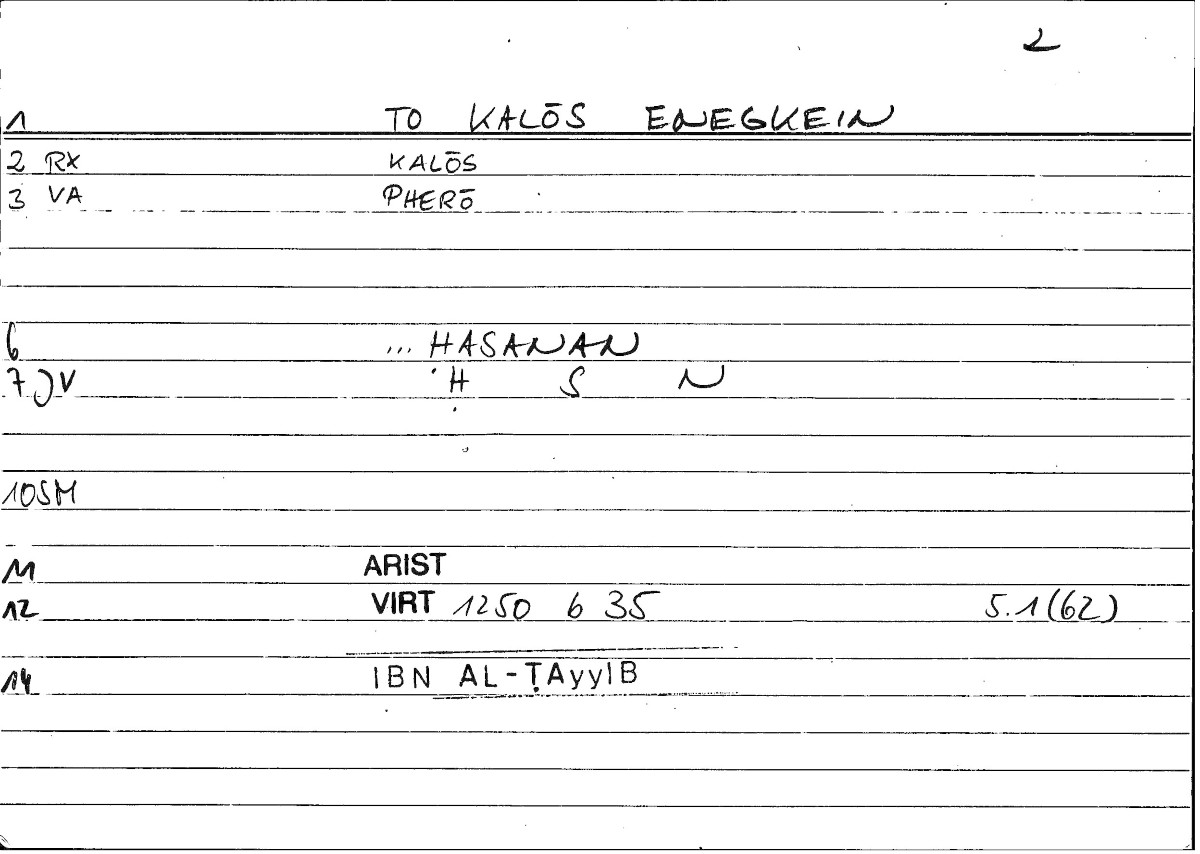 2
1 TO KALŌS ENEGKEIN
2 RX KALŌS
3 VA PHERŌ
6 ... HASANAN
7 JV Ḥ S N
10SM
11 ARIST
12 VIRT 1250 b 35 5.1(62)
14 IBN AL-ṬAyyIB